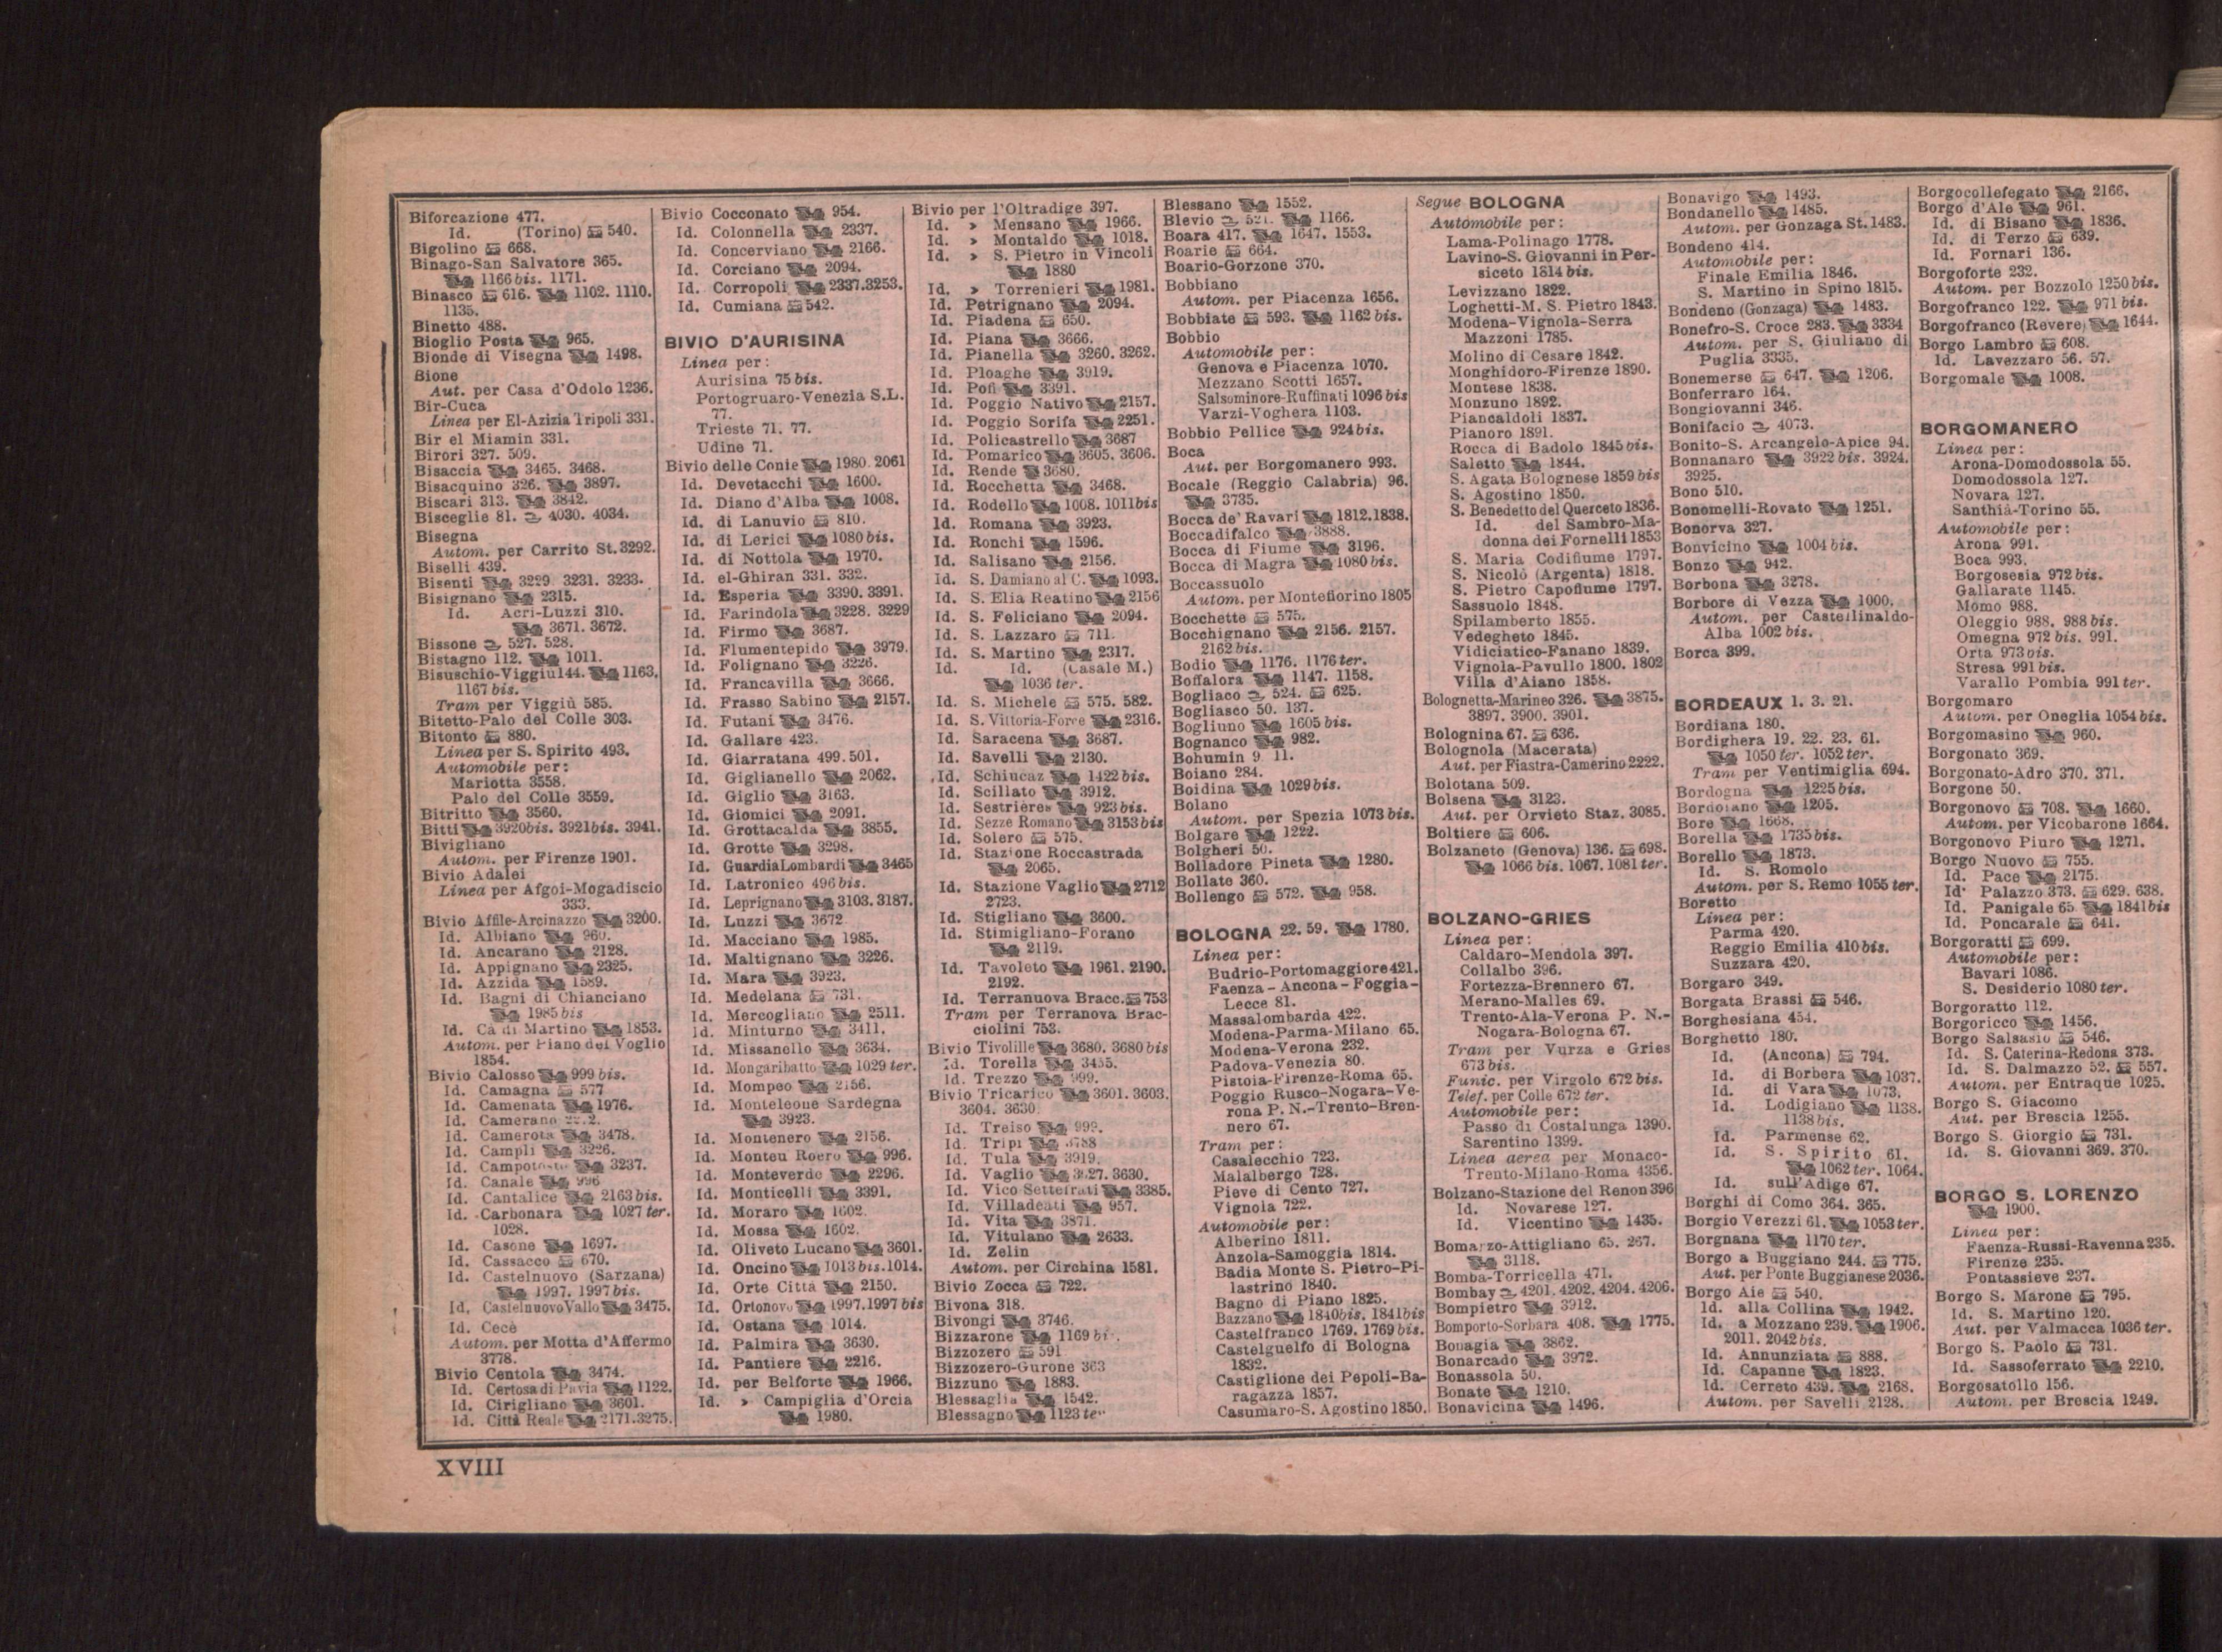 Biforcazione 477.
Id. (Torino) 540.
Bigolino 668.
Binago-San Salvatore 365.
1166 bis. 1171.
Binasco 616. 1102. 1110.
1135.
Binetto 488.
Bioglio Posta 965.
Bionde di Visegna 1498.
Bione
Aut. per Casa d'Odolo 1236.
Bir-Cuca
Linea per El-Azizia Tripoli 331.
Bir el Miamin 331.
Birori 327. 509.
Bisaccia 3465. 3468.
Bisacquino 326. 3897.
Biscari 313. 3842.
Bisceglie 81. 4030. 4034.
Bisegna
Autom. per Carrito St. 3292.
Biselli 439.
Bisenti 3229. 3231. 3233.
Bisignano 2315.
Id. Acri-Luzzi 310.
3671. 3672.
Bissone 527. 528.
Bistagno 112. 1011.
Bisuschio-Viggiù 144. 1163.
1167 bis.
Tram per Viggiù 585.
Bitetto-Palo del Colle 303.
Bitonto 880.
Linea per S. Spirito 493.
Automobile per:
Mariotta 3558.
Palo del Colle 3559.
Bitritto 3560.
Bitti 3920bis. 3921bis. 3941.
Bivigliano
Autom. per Firenze 1901.
Bivio Adalei
Linea per Afgoi-Mogadiscio
333.
Bivio Affile-Arcinazzo 3200.
Id. Albiano 960.
Id. Ancarano 2128.
Id. Appignano 2325.
Id. Azzida 1589.
Id. Bagni di Chianciano
1985 bis
Id. Cà di Martino 1853.
Autom. per Piano del Voglio
1854.
Bivio Calosso 999 bis.
Id. Camagna 577
Id. Camenata 1976.
Id. Camerano
Id. Camerota 3478.
Id. Campli 3226.
Id. Campotosto 3237.
Id. Canale 996
Id. Cantalice 2163 bis.
Id. Carbonara 1027 ter.
1028.
Id. Casone 1697.
Id. Cassacco 670.
Id. Castelnuovo (Sarzana)
1997. 1997 bis.
Id. Castelnuovo Vallo 3475.
Id. Cecè
Autom. per Motta d'Affermo
3778.
Bivio Centola 3474.
Id. Certosa di Pavia 1122.
Id. Cirigliano 3601.
Id. Città Reale 2171. 3275.
Bivio Cocconato 954.
Id. Colonnella 2337.
Id. Concerviano 2166.
Id. Corciano 2094.
Id. Corropoli 2337. 3253.
Id. Cumiana 542.
BIVIO D'AURISINA
Linea per:
Aurisina 75 bis.
Portogruaro-Venezia S.L.
77.
Trieste 71. 77.
Udine 71.
Bivio delle Conie 1980. 2061
Id. Devetacchi 1600.
Id. Diano d'Alba 1008.
Id. di Lanuvio 810.
Id. di Lerici 1080 bis.
Id. di Nottola 1970.
Id. el-Ghiran 331. 332.
Id. Esperia 3390. 3391.
Id. Farindola 3228. 3229
Id. Firmo 3687.
Id. Flumentepido 3979.
Id. Folignano 3226.
Id. Francavilla 3666.
Id. Frasso Sabino 2157.
Id. Futani 3476.
Id. Gallare 423.
Id. Giarratana 499. 501.
Id. Giglianello 2062.
Id. Giglio 3163.
Id. Giomici 2091.
Id. Grottacalda 3855.
Id. Grotte 3298.
Id. Guardia Lombardi 3465
Id. Latronico 496 bis.
Id. Leprignano 3103. 3187.
Id. Luzzi 3672
Id. Macciano 1985.
Id. Maltignano 3226.
Id. Mara 3923.
Id. Medelana 731.
Id. Mercogliano 2511.
Id. Minturno 3411.
Id. Missanello 3634.
Id. Mongaribatto 1029 ter.
Id. Mompeo 2156.
Id. Monteleone Sardegna
3923.
Id. Montenero 2156.
Id. Monteu Roero 996.
Id. Monteverde 2296.
Id. Monticelli 3391.
Id. Moraro 1602.
Id. Mossa 1602.
Id. Oliveto Lucano 3601.
Id. Oncino 1013 bis. 1014.
Id. Orte Città 2150.
Id. Ortonovo 1997. 1997 bis
Id. Ostana 1014.
Id. Palmira 3630.
Id. Pantiere 2216.
Id. per Belforte 1966.
Id. » Campiglia d'Orcia
1980.
Bivio per l'Oltradige 397.
Id. » Mensano 1966.
Id. » Montaldo 1018.
Id. » S. Pietro in Vincoli
1880
Id. » Torrenieri 1981.
Id. Petrignano 2094.
Id. Piadena 650.
Id. Piana 3666.
Id. Pianella 3260. 3262.
Id. Ploaghe 3919.
Id. Pofi 3391.
Id. Poggio Nativo 2157.
Id. Poggio Sorifa 2251.
Id. Policastrello 3687
Id. Pomarico 3605. 3606.
Id. Rende 3680.
Id. Rocchetta 3468.
Id. Rodello 1008. 1011bis
Id. Romana 3923.
Id. Ronchi 1596.
Id. Salisano 2156.
Id. S. Damiano al C. 1093.
Id. S. Elia Reatino 2156
Id. S. Feliciano 2094.
Id. S. Lazzaro 711.
Id. S. Martino 2317.
Id. Id. (Casale M.)
1036 ter.
Id. S. Michele 575. 582.
Id. S. Vittoria-Force 2316.
Id. Saracena 3687.
Id. Savelli 2130.
Id. Schiucaz 1422 bis.
Id. Scillato 3912.
Id. Sestrières 923 bis.
Id. Sezze Romano 3153 bis
Id. Solero 575.
Id. Stazione Roccastrada
2065.
Id. Stazione Vaglio 2712
2723.
Id. Stigliano 3600.
Id. Stimigliano-Forano
2119.
Id. Tavoleto 1961. 2190.
2192.
Id. Terranuova Bracc. 753
Tram per Terranova Brac-
ciolini 753.
Bivio Tivolille 3680. 3680 bis
Id. Torella 3455.
Id. Trezzo 999.
Bivio Tricarico 3601. 3603.
3604. 3630.
Id. Treiso 999.
Id. Tripi 3788
Id. Tula 3919.
Id. Vaglio 3627. 3630.
Id. Vico Settefrati 3385.
Id. Villadeati 957.
Id. Vita 3871.
Id. Vitulano 2633.
Id. Zelin
Autom. per Circhina 1581.
Bivio Zocca 722.
Bivona 318.
Bivongi 3746.
Bizzarone 1169
Bizzozero 591
Bizzozero-Gurone 363
Bizzuno 1883.
Blessaglia 1542.
Blessagno 1123 ter
Blessano 1552.
Blevio 521. 1166.
Boara 417. 1647. 1553.
Boarie 664.
Boario-Gorzone 370.
Bobbiano
Autom. per Piacenza 1656.
Bobbiate 593. 1162 bis.
Bobbio
Automobile per:
Genova e Piacenza 1070.
Mezzano Scotti 1657.
Salsominore-Ruffinati 1096 bis
Varzi-Voghera 1103.
Bobbio Pellice 924 bis.
Boca
Aut. per Borgomanero 993.
Bocale (Reggio Calabria) 96.
3735.
Bocca de' Ravari 1812. 1838.
Boccadifalco 3888.
Bocca di Fiume 3196.
Bocca di Magra 1080 bis.
Boccassuolo
Autom. per Montefiorino 1805
Bocchette 575.
Bocchignano 2156. 2157.
2162 bis.
Bodio 1176. 1176 ter.
Boffalora 1147. 1158.
Bogliaco 524. 625.
Bogliasco 50. 137.
Bogliuno 1605 bis.
Bognanco 982.
Bohumin 9 11.
Boiano 284.
Boidina 1029 bis.
Bolano
Autom. per Spezia 1073 bis.
Bolgare 1222.
Bolgheri 50.
Bolladore Pineta 1280.
Bollate 360.
Bollengo 572. 958.
BOLOGNA 22. 59. 1780.
Linea per:
Budrio-Portomaggiore 421.
Faenza-Ancona-Foggia-
Lecce 81.
Massalombarda 422.
Modena-Parma-Milano 65.
Modena-Verona 232.
Padova-Venezia 80.
Pistoia-Firenze-Roma 65.
Poggio Rusco-Nogara-Ve-
rona P. N.-Trento-Bren-
nero 67.
Tram per:
Casalecchio 723.
Malalbergo 728.
Pieve di Cento 727.
Vignola 722.
Automobile per:
Alberino 1811.
Anzola-Samoggia 1814.
Badia Monte S. Pietro-Pi-
lastrino 1840.
Bagno di Piano 1825.
Bazzano 1840bis. 1841bis
Castelfranco 1769. 1769 bis.
Castelguelfo di Bologna
1832.
Castiglione dei Pepoli-Ba-
ragazza 1857.
Casumaro-S. Agostino 1850.
Segue BOLOGNA
Automobile per:
Lama-Polinago 1778.
Lavino-S. Giovanni in Per-
siceto 1814 bis.
Levizzano 1822.
Loghetti-M. S. Pietro 1843.
Modena-Vignola-Serra
Mazzoni 1785.
Molino di Cesare 1842.
Monghidoro-Firenze 1890.
Montese 1838.
Monzuno 1892.
Piancaldoli 1837.
Pianoro 1891.
Rocca di Badolo 1845 bis.
Saletto 1844.
S. Agata Bolognese 1859 bis
S. Agostino 1850.
S. Benedetto del Querceto 1836.
Id. del Sambro-Ma-
donna dei Fornelli 1853
S. Maria Codifiume 1797.
S. Nicolò (Argenta) 1818.
S. Pietro Capofiume 1797.
Sassuolo 1848.
Spilamberto 1855.
Vedegheto 1845.
Vidiciatico-Fanano 1839.
Vignola-Pavullo 1800. 1802
Villa d'Aiano 1858.
Bolognetta-Marineo 326. 3875.
3897. 3900. 3901.
Bolognina 67. 636.
Bolognola (Macerata)
Aut. per Fiastra-Camerino 2222.
Bolotana 509.
Bolsena 3123.
Aut. per Orvieto Staz. 3085.
Boltiere 606.
Bolzaneto (Genova) 136. 698.
1066 bis. 1067. 1081 ter.
BOLZANO-GRIES
Linea per:
Caldaro-Mendola 397.
Collalbo 396.
Fortezza-Brennero 67.
Merano-Malles 69.
Trento-Ala-Verona P. N.-
Nogara-Bologna 67.
Tram per Vurza e Gries
673 bis.
Funic. per Virgolo 672 bis.
Telef. per Colle 672 ter.
Automobile per:
Passo di Costalunga 1390.
Sarentino 1399.
Linea aerea per Monaco-
Trento-Milano-Roma 4356.
Bolzano-Stazione del Renon 396
Id. Novarese 127.
Id. Vicentino 1435.
Bomarzo-Attigliano 65. 267.
3118.
Bomba-Torricella 471.
Bombay 4201. 4202. 4204. 4206.
Bompietro 3912.
Bomporto-Sorbara 408. 1775.
Bonagia 3862.
Bonarcado 3972.
Bonassola 50.
Bonate 1210.
Bonavicina 1496.
Bonavigo 1493.
Bondanello 1485.
Autom. per Gonzaga St. 1483.
Bondeno 414.
Automobile per:
Finale Emilia 1846.
S. Martino in Spino 1815.
Bondeno (Gonzaga) 1483.
Bonefro-S. Croce 283. 3334
Autom. per S. Giuliano di
Puglia 3335.
Bonemerse 647. 1206.
Bonferraro 164.
Bongiovanni 346.
Bonifacio 4073.
Bonito-S. Arcangelo-Apice 94.
Bonnanaro 3922 bis. 3924.
3925.
Bono 510.
Bonomelli-Rovato 1251.
Bonorva 327.
Bonvicino 1004 bis.
Bonzo 942.
Borbona 3278.
Borbore di Vezza 1000.
Autom. per Castellinaldo-
Alba 1002 bis.
Borca 399.
BORDEAUX 1. 3. 21.
Bordiana 180.
Bordighera 19. 22. 23. 61.
1050 ter. 1052 ter.
Tram per Ventimiglia 694.
Bordogna 1225 bis.
Bordolano 1205.
Bore 1668.
Borella 1735 bis.
Borello 1873.
Id. S. Romolo
Autom. per S. Remo 1055 ter.
Boretto
Linea per:
Parma 420.
Reggio Emilia 410 bis.
Suzzara 420.
Borgaro 349.
Borgata Brassi 546.
Borghesiana 454.
Borghetto 180.
Id. (Ancona) 794.
Id. di Borbera 1037.
Id. di Vara 1073.
Id. Lodigiano 1138.
1138 bis.
Id. Parmense 62.
Id. S. Spirito 61.
1062 ter. 1064.
Id. sull'Adige 67.
Borghi di Como 364. 365.
Borgio Verezzi 61. 1053 ter.
Borgnana 1170 ter.
Borgo a Buggiano 244. 775.
Aut. per Ponte Buggianese 2036.
Borgo Aie 540.
Id. alla Collina 1942.
Id. a Mozzano 239. 1906.
2011. 2042 bis.
Id. Annunziata 888.
Id. Capanne 1823.
Id. Cerreto 439. 2168.
Autom. per Savelli 2128.
Borgocollefegato 2166.
Borgo d'Ale 961.
Id. di Bisano 1836.
Id. di Terzo 639.
Id. Fornari 136.
Borgoforte 232.
Autom. per Bozzolo 1250 bis.
Borgofranco 122. 971 bis.
Borgofranco (Revere) 1644.
Borgo Lambro 608.
Id. Lavezzaro 56. 57.
Borgomale 1008.
BORGOMANERO
Linea per:
Arona-Domodossola 55.
Domodossola 127.
Novara 127.
Santhià-Torino 55.
Automobile per:
Arona 991.
Boca 993.
Borgosesia 972 bis.
Gallarate 1145.
Momo 988.
Oleggio 988. 988 bis.
Omegna 972 bis. 991.
Orta 973 bis.
Stresa 991 bis.
Varallo Pombia 991 ter.
Borgomaro
Autom. per Oneglia 1054 bis.
Borgomasino 960.
Borgonato 369.
Borgonato-Adro 370. 371.
Borgone 50.
Borgonovo 708. 1660.
Autom. per Vicobarone 1664.
Borgonovo Piuro 1271.
Borgo Nuovo 755.
Id. Pace 2175.
Id. Palazzo 373. 629. 638.
Id. Panigale 65 1841bis
Id. Poncarale 641.
Borgoratti 699.
Automobile per:
Bavari 1086.
S. Desiderio 1080 ter.
Borgoratto 112.
Borgoricco 1456.
Borgo Salsasio 546.
Id. S. Caterina-Redona 373.
Id. S. Dalmazzo 52. 557.
Autom. per Entraque 1025.
Borgo S. Giacomo
Aut. per Brescia 1255.
Borgo S. Giorgio 731.
Id. S. Giovanni 369. 370.
BORGO S. LORENZO
1900.
Linea per:
Faenza-Russi-Ravenna 235.
Firenze 235.
Pontassieve 237.
Borgo S. Marone 795.
Id. S. Martino 120.
Aut. per Valmacca 1036 ter.
Borgo S. Paolo 731.
Id. Sassoferrato 2210.
Borgosatollo 156.
Autom. per Brescia 1249.
XVIII